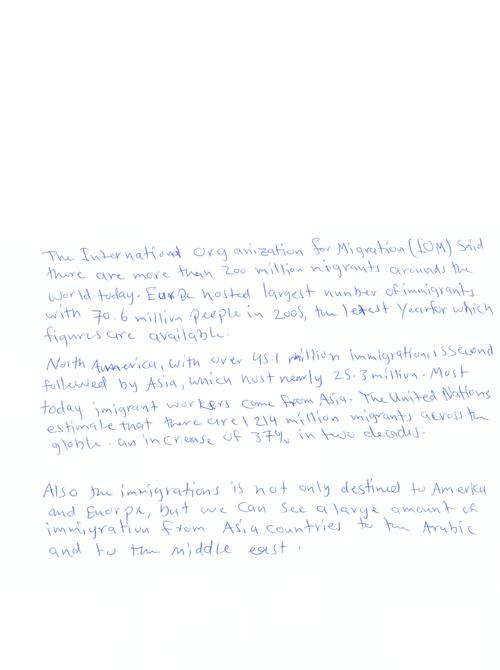 The International Organization for Migration (IOM) Said
there are more than 200 million migrants around the
world today. Europe hosted largest number of immigrants
with 70.6 million people in 2005, the latest Year for which
figures are available.
North America, with over 45.1 million immigrations, is second
followed by Asia, which host nearly 25.3 million. Most
today imigrant workers come from Asia. The United Nations
estimate that there are 214 million migrants across the
globle. an increase of 37% in two decades.
Also the immigrations is not only destined to Amerka
and Euorpe, but we can see a large amount of
immigration from Asia countries to the Arabic
and to the middle east.